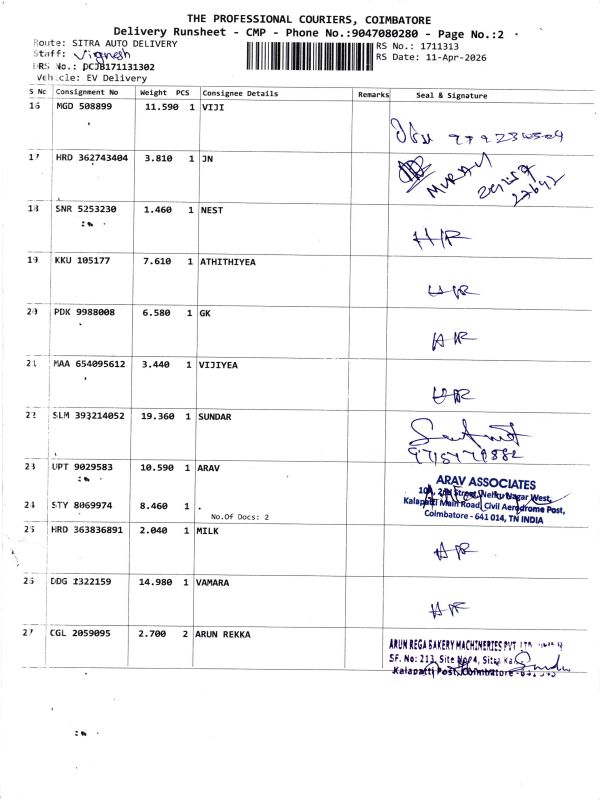 THE PROFESSIONAL COURIERS, COIMBATORE
Delivery Runsheet - CMP - Phone No.:9047080280 - Page No.:2
Route: SITRA AUTO DELIVERY
RS No.: 1711313
Staff: Vignesh
RS Date: 11-Apr-2026
DRS No.: DCJB171131302
Vehicle: EV Delivery
S No Consignment No Weight PCS Consignee Details Remarks Seal & Signature
16 MGD 508899 11.590 1 VIJI
17 HRD 362743404 3.810 1 JN
MURALI
18 SNR 5253230 1.460 1 NEST
H/R
19 KKU 105177 7.610 1 ATHITHIYEA
HR
20 PDK 9988008 6.580 1 GK
HR
21 MAA 654095612 3.440 1 VIJIYEA
HR
22 SLM 393214052 19.360 1 SUNDAR
23 UPT 9029583 10.590 1 ARAV
ARAV ASSOCIATES
10A, 2nd Street, Nehru Nagar West,
24 STY 8069974 8.460 1 .
Kalapatti Main Road, Civil Aerodrome Post,
No.Of Docs: 2
Coimbatore - 641 014, TN INDIA
25 HRD 363836891 2.040 1 MILK
HR
26 DDG 1322159 14.980 1 VAMARA
HR
27 CGL 2059095 2.700 2 ARUN REKKA
ARUN REGA BAKERY MACHINERIES PVT LTD
SF. No: 213, Site No 4, Sitra
Kalapatti Post, Coimbatore - 641